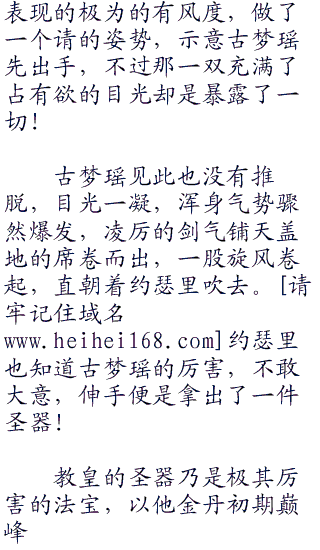 表现的极为的有风度，做了
一个请的姿势，示意古梦瑶
先出手，不过那一双充满了
占有欲的目光却是暴露了一
切！
古梦瑶见此也没有推
脱，目光一凝，浑身气势骤
然爆发，凌厉的剑气铺天盖
地的席卷而出，一股旋风卷
起，直朝着约瑟里吹去。[请
牢记住域名
www.heihei168.com]约瑟里
也知道古梦瑶的厉害，不敢
大意，伸手便是拿出了一件
圣器！
教皇的圣器乃是极其厉
害的法宝，以他金丹初期巅
峰